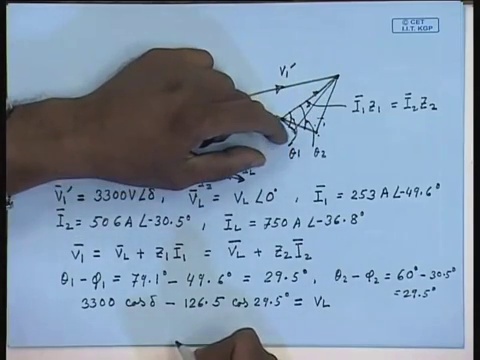 © CET
I.I.T. KGP
V₁′
Ī₁Z₁ = Ī₂Z₂
θ₁ θ₂
V̄₁′ = 3300V∠δ, V̄_L = V_L∠0°, Ī₁ = 253 A ∠-49.6°
Ī₂ = 506 A ∠-30.5°, Ī_L = 750 A ∠-36.8°
V̄₁ = V̄_L + Z₁Ī₁ = V̄_L + Z₂Ī₂
θ₁-φ₁ = 79.1°-49.6° = 29.5°, θ₂-φ₂ = 60°-30.5°
= 29.5°
3300 cosδ - 126.5 cos 29.5° = V_L